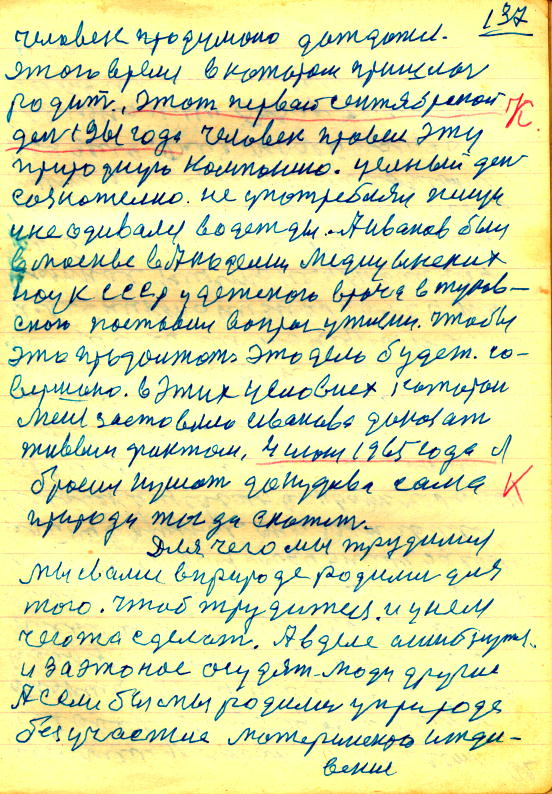 137
человек продумоно дождоти.
этого время в котором пришлос
родит. Этот первай сентябрской К.
ден 1961 года человек провел эту
природную компанию. целный ден
сознотелно. не употреблял пищи
и не одивалси в одежды. А Иванов был
в москве в Академии Медицынских
наук СССР у детского врача в туров-
ского поставил вопрос у тивии. чтобы
это продолжать это дело будет. со-
вершоно. в этих условиех, которои
меня заставило Иванова доказат
живым фактом, 4 июня 1965 года Я
бросил кушат до тудова сама К
природа тогда скажет.
Для чего мы трудимся
мы свами в природе родилис для
того. чтоб трудится. и у нем
чегота сделат. А в деле ошибнутся.
и за это нас осудят люди другие
А если бы мы родилис у природе
без участие материнского ижди-
вение